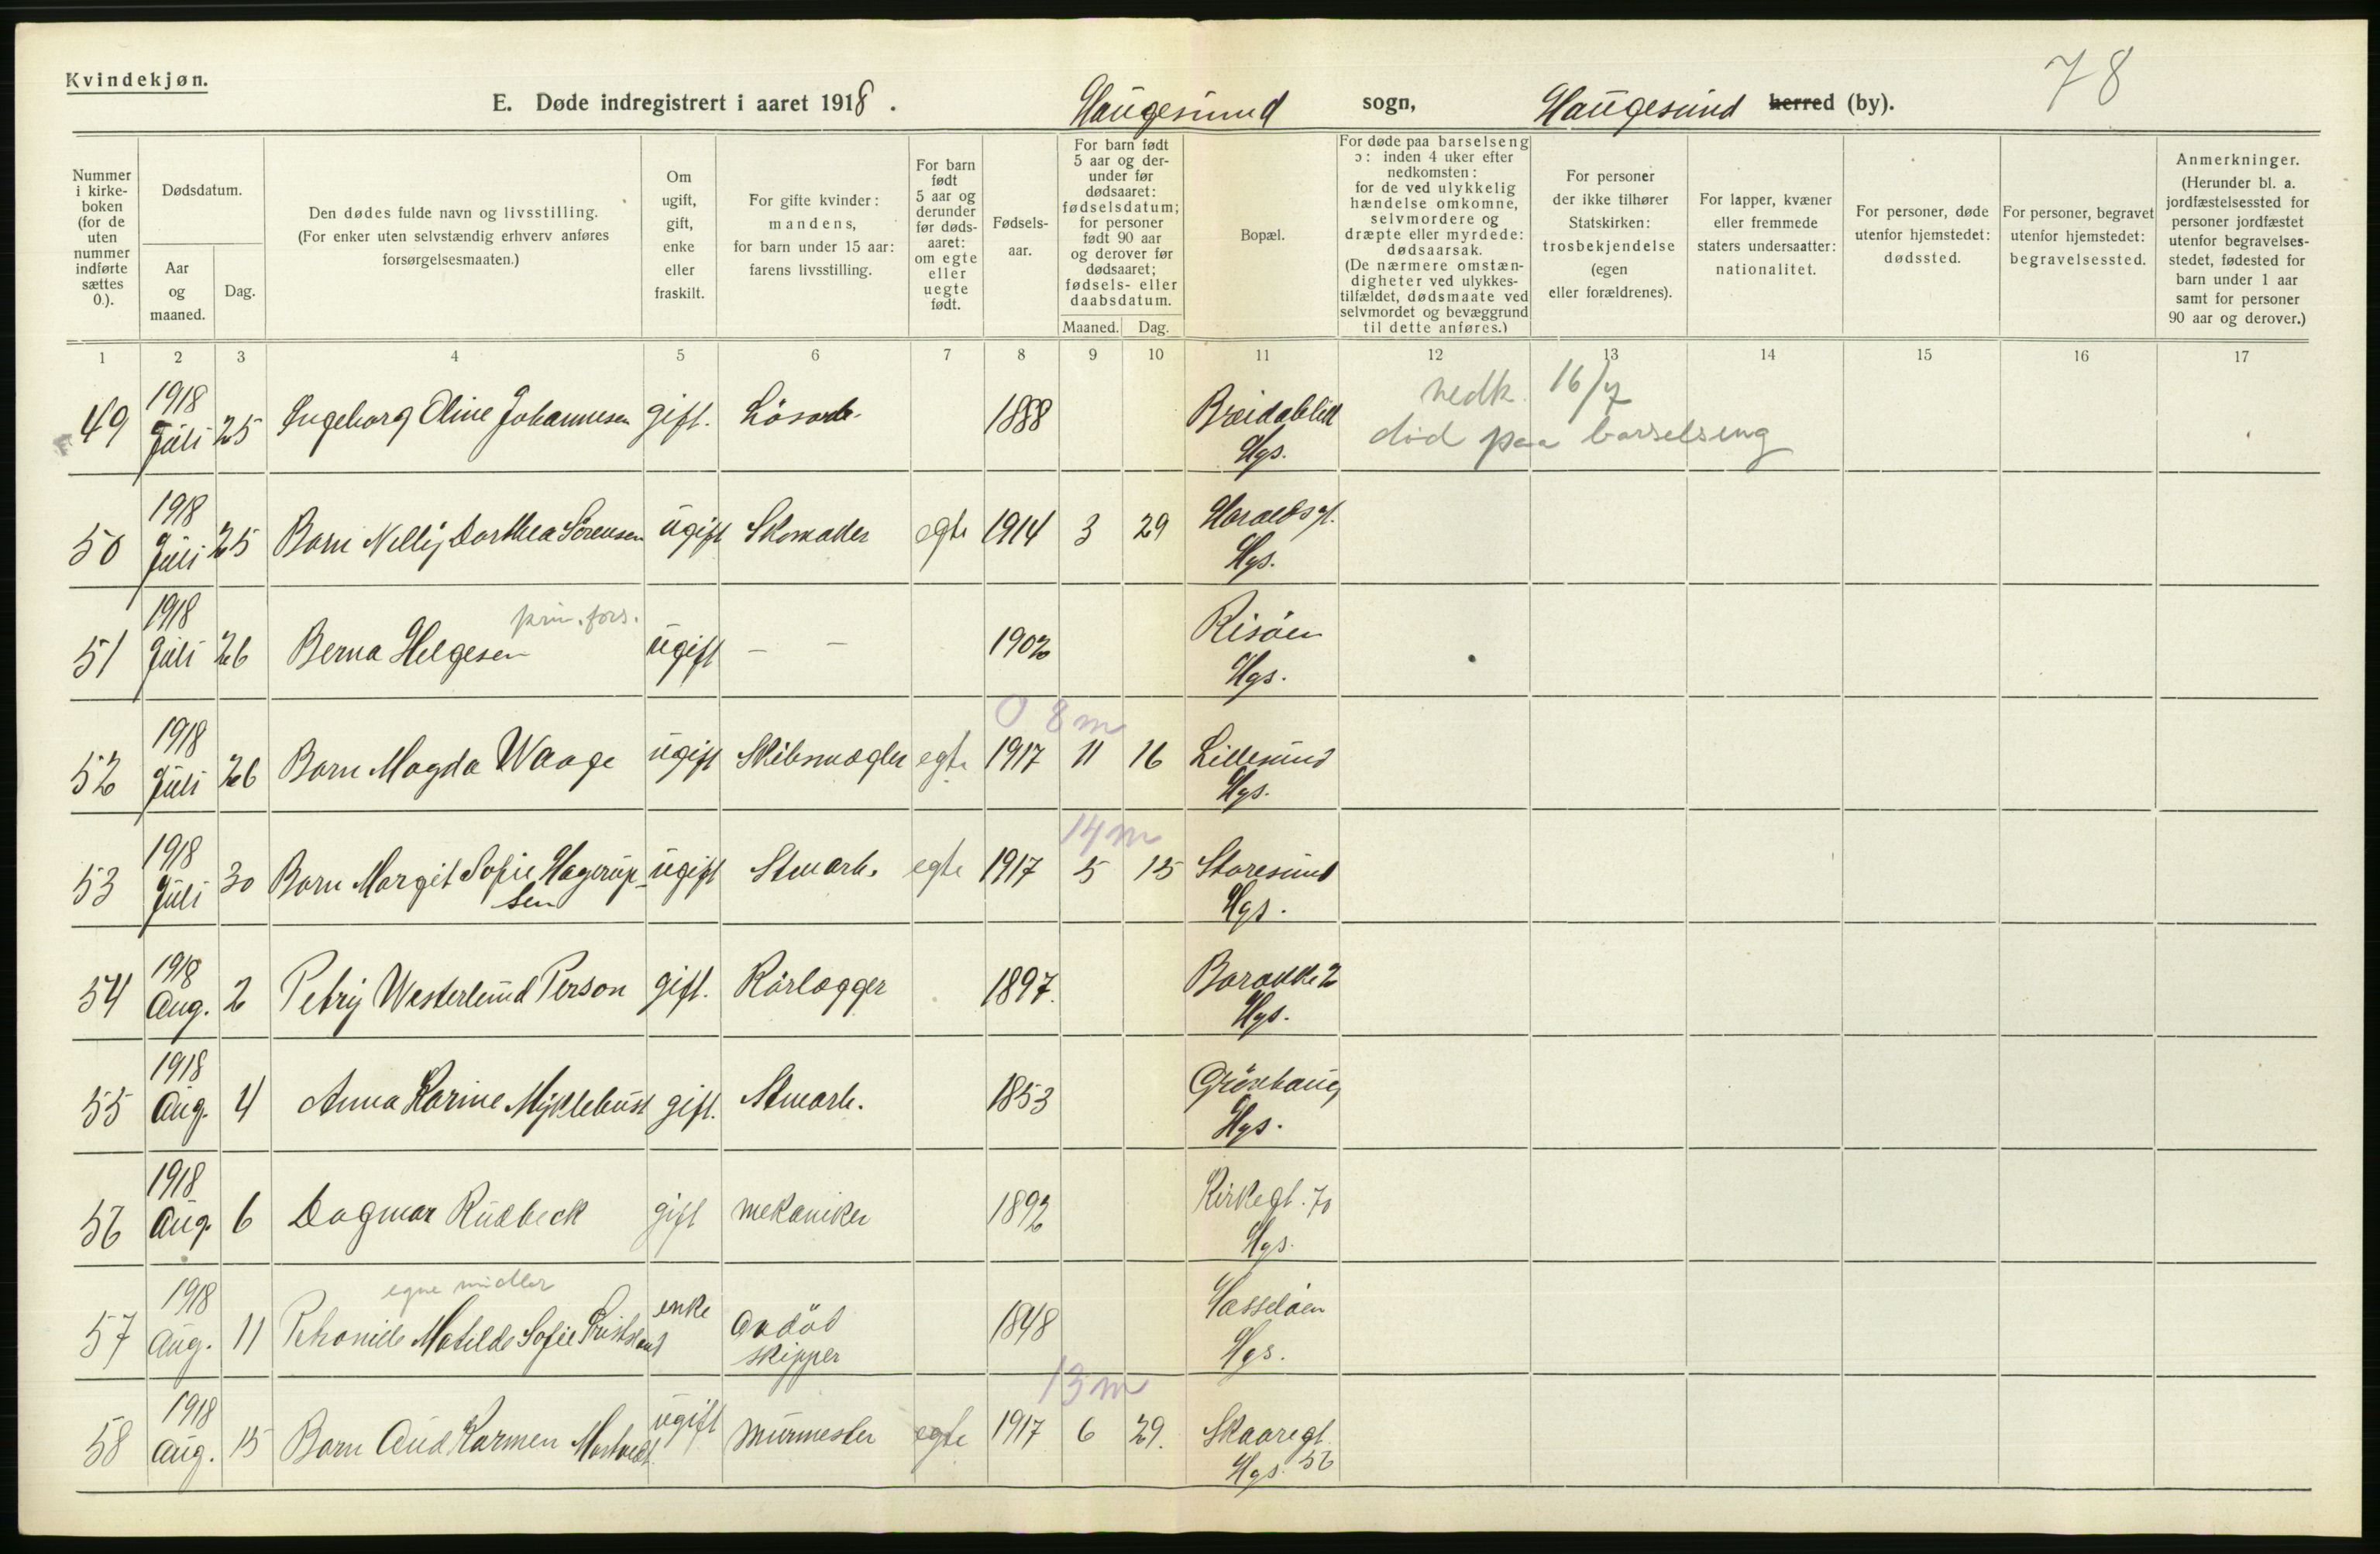 Kvindekjøn.
78
E. Døde indregistrert i aaret 1918.
Haugesund sogn, Haugesund herred (by).
Nummer i kirke-boken (for de uten nummer indførte sættes 0.).
Dødsdatum.
Aar og maaned.
Dag.
Den dødes fulde navn og livsstilling.
(For enker uten selvstændig erhverv anføres
forsørgelsesmaaten.)
Om ugift, gift, enke eller fraskilt.
For gifte kvinder: mandens, for barn under 15 aar: farens livsstilling.
For barn født 5 aar og derunder før døds-aaret: om egte eller uegte født.
Fødsels-aar.
For barn født 5 aar og der-under før dødsaaret: fødselsdatum; for personer født 90 aar og derover før dødsaaret; fødsels- eller daabsdatum.
Maaned. Dag.
Bopæl.
For døde paa barselseng ɔ: inden 4 uker efter nedkomsten: for de ved ulykkelig hændelse omkomne, selvmordere og dræpte eller myrdede: dødsaarsak. (De nærmere omstæn-digheter ved ulykkes-tilfældet, dødsmaate ved selvmordet og bevæggrund til dette anføres.)
For personer der ikke tilhører Statskirken: trosbekjendelse (egen eller forældrenes).
For lapper, kvæner eller fremmede staters undersaatter: nationalitet.
For personer, døde utenfor hjemstedet: dødssted.
For personer, begravet utenfor hjemstedet: begravelsessted.
Anmerkninger. (Herunder bl. a. jordfæstelsessted for personer jordfæstet utenfor begravelses-stedet, fødested for barn under 1 aar samt for personer 90 aar og derover.)
1 2 3 4 5 6 7 8 9 10 11 12 13 14 15 16 17
49 1918 Juli 25 Ingeborg Oline Johannesen gift. Lösarb. 1888 Breidablik Hgs. nedk. 16/7
død paa barselseng
50 1918 Juli 25 Barn Nelly Dorthea Sörensen ugift Skomaker egte 1914 3 29 Haraldsgt. Hgs.
priv. fors.
51 1918 Juli 26 Berna Helgesen ugift — — 1902 Risöen Hgs.
0 8 m
52 1918 Juli 26 Barn Magda Waage ugift Skibsmægler egte 1917 11 16 Lillesund Hgs.
14 m
53 1918 Juli 30 Barn Margit Sofie Hagerup-sen ugift Stuearb. egte 1917 5 15 Storesund Hgs.
54 1918 Aug. 2 Petry Westerlund Person gift. Rörlægger 1897. Barakke 2 Hgs.
55 1918 Aug. 4 Anna Karine Myklebust gift. Stuearb. 1853 Grönhaug Hgs.
56 1918 Aug. 6 Dagmar Rudbeck gift mekaniker 1892 Kirkegt. 70 Hgs.
egne midler
57 1918 Aug. 11 Matilde Sofie enke avdöd skipper 1848 Hasselöen Hgs.
13 m
58 1918 Aug. 15 Barn Aud Karmen ugift Murmester egte 1917 6 29. Skaaregt. 56 Hgs.